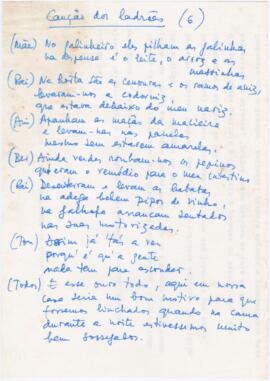 Canção dos ladrões (6)
(Mãe) No galinheiro eles pilham as galinhas
na despensa é o leite, o arroz e as
massinhas
(Pai) Na horta são as cenouras e os ramos de aniz,
levaram-nos a codorniz,
que estava debaixo do meu nariz.
Apanham as maçãs da macieira
e levam-nas nas panelas
mesmo sem estarem amarelas.
Ainda verdes roubam-nos os pepinos
que eram o remédio para o meu intestino
(Pai) Desenterram e levam as batatas
na adega bebem pipos de vinho,
na galhofa arrancam sentados
nas suas motorizadas.
(Ton) Assim já tás a ver
porqu'é qu'a gente
nada tem para esconder.
(Todos) E esse ouro todo, aqui em nossa
casa seria um bom motivo para que
fossemos linchados quando na cama
durante a noite estivessemos muito
bem sossegados.